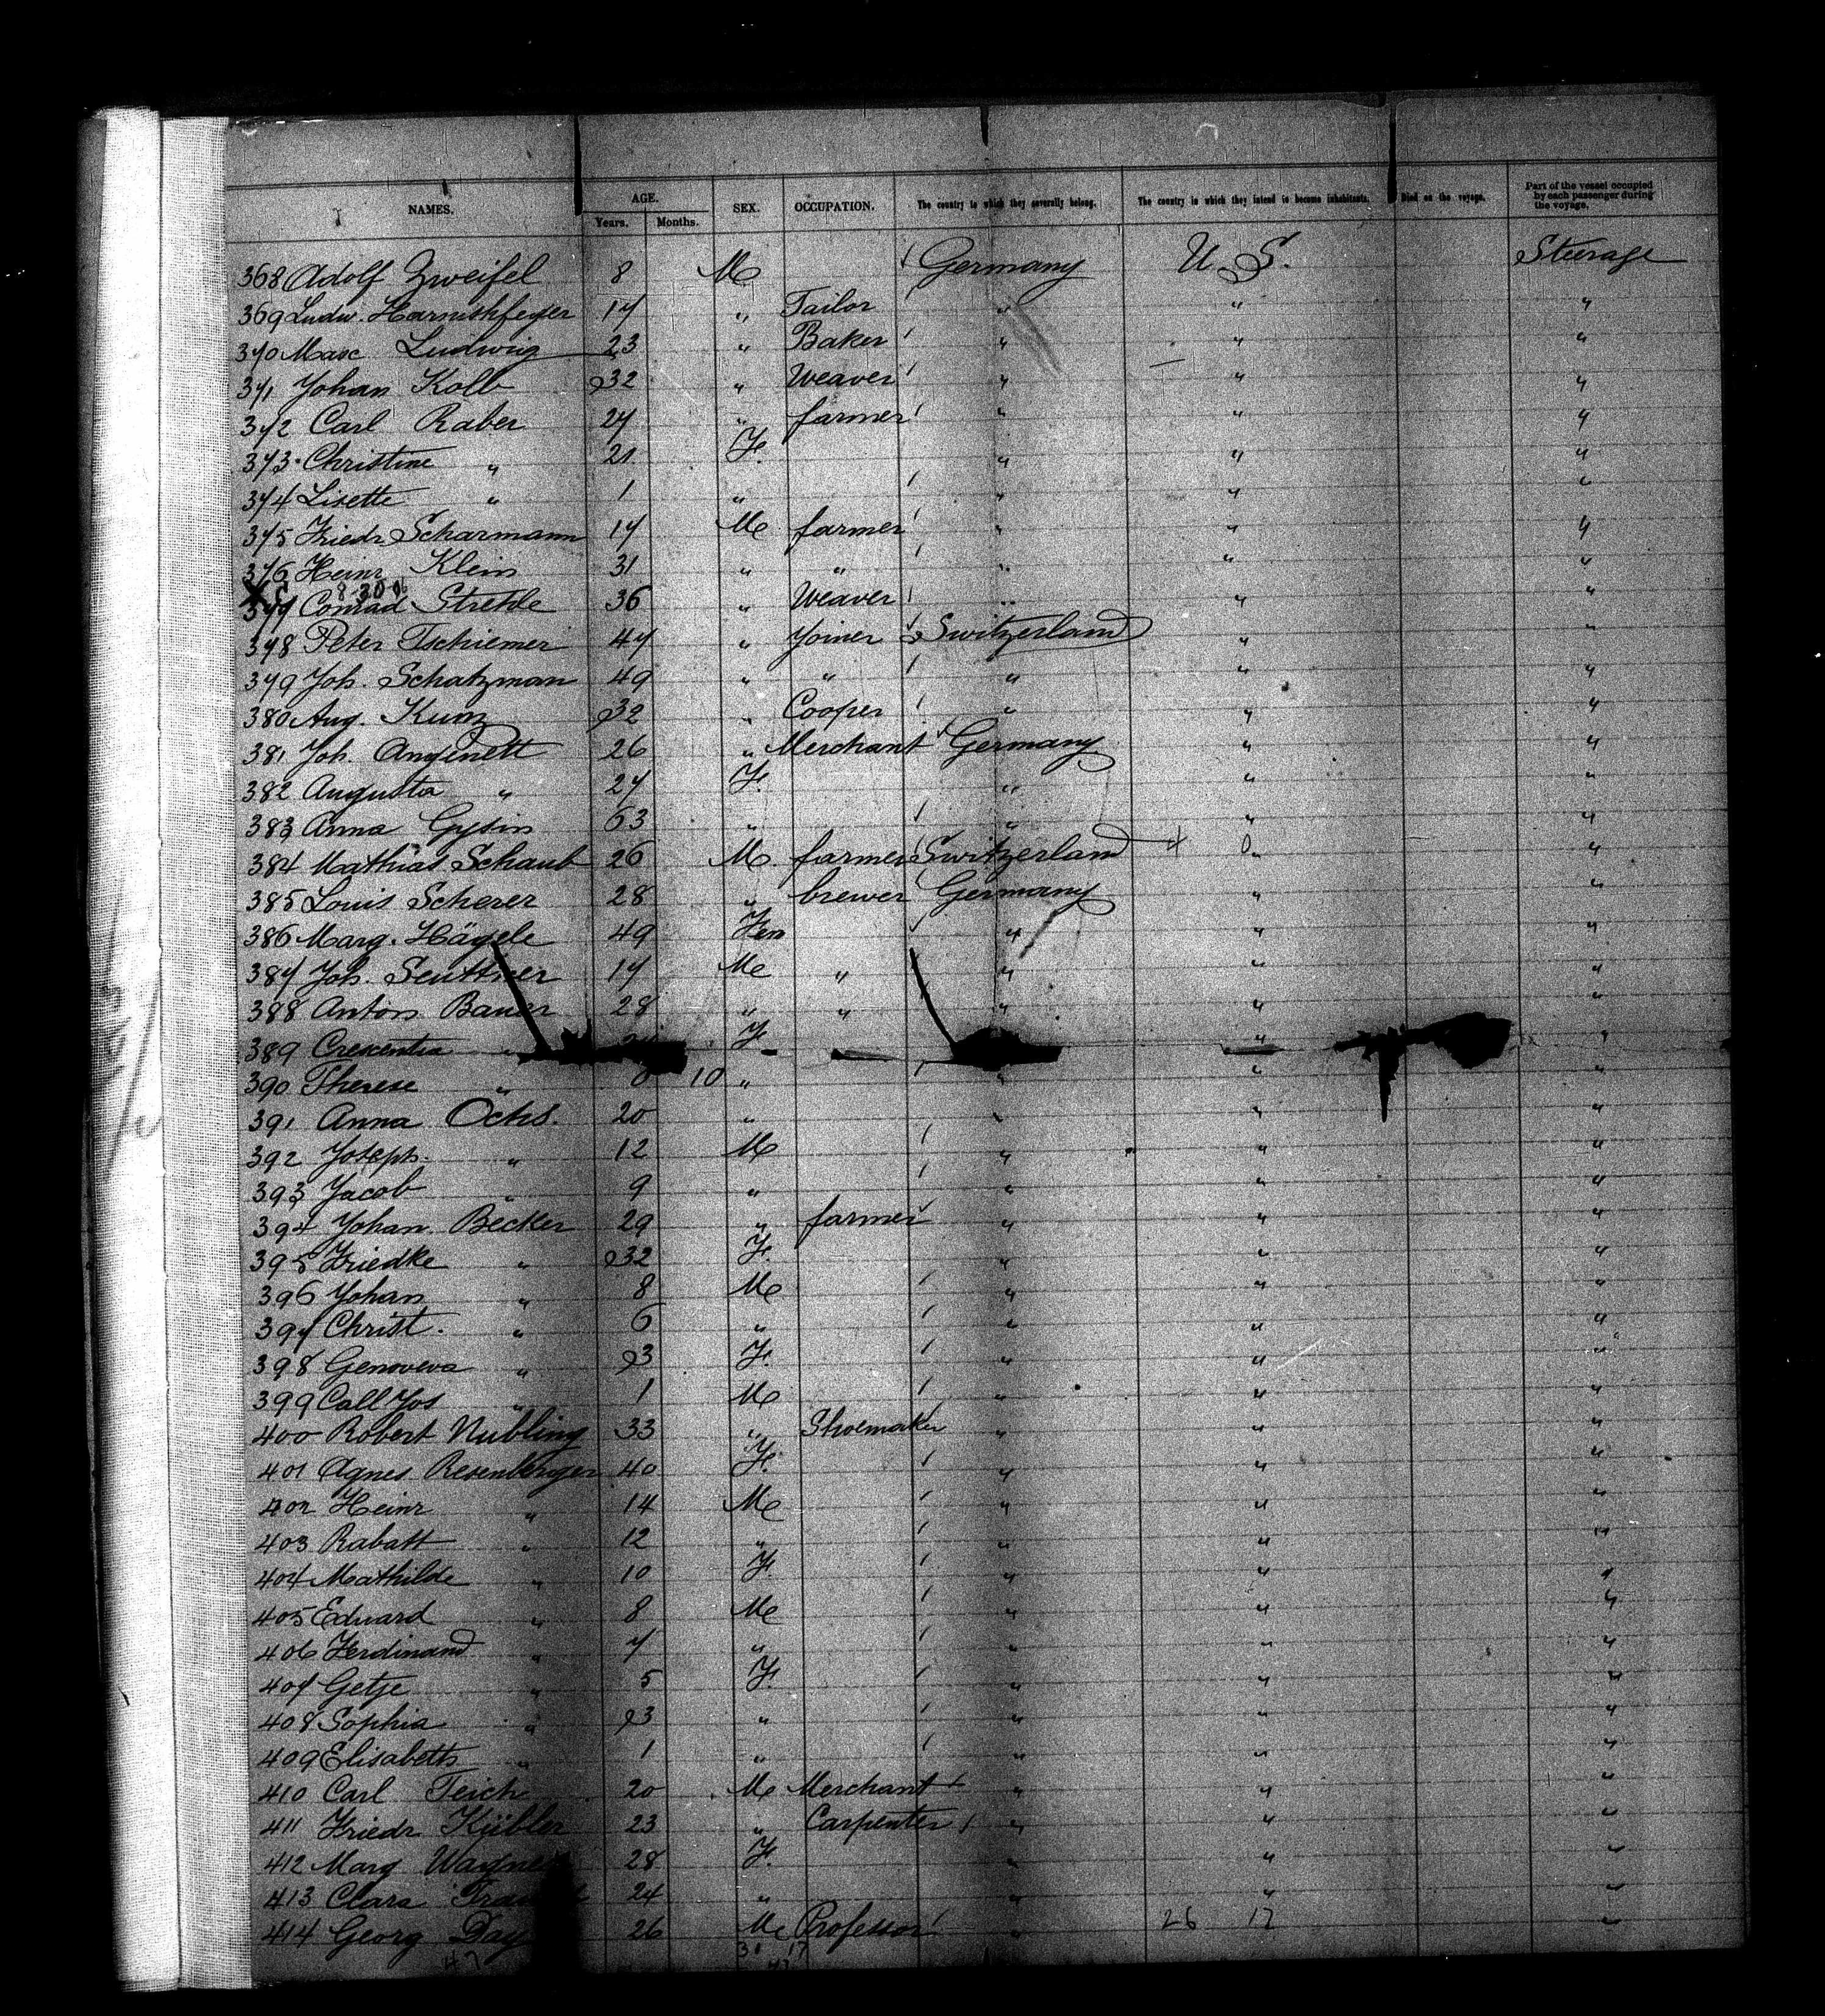 NAMES. AGE. SEX. OCCUPATION. The country to which they severally belong. The country in which they intend to become inhabitants. Died on the voyage. Part of the vessel occupied by each passenger during the voyage.
Years. Months.
368 Adolf Zweifel 8 M Germany U.S. Steerage
369 Ludw. Harnishfeger 17 " Tailor " " "
370 Marc Ludwig 23 " Baker " " "
371 Johan Kolb 32 " Weaver " " "
372 Carl Raber 27 " farmer " " "
373 Christine " 21 F. " " "
374 Lisette " 1 " " " "
375 Friedr. Scharmann 17 M farmer " " "
376 Heinr Klein 31 " " " " "
377 Conrad Strehle 36 " Weaver " " "
378 Peter Tschiemer 47 " Joiner Switzerland " "
379 Joh. Schatzman 49 " " " " "
380 Aug. Kunz 32 " Cooper " " "
381 Joh. Angenett 26 " Merchant Germany " "
382 Augusta " 27 F. " " "
383 Anna Gysin 63 " " " "
384 Mathias Schaub 26 M. farmer Switzerland " "
385 Louis Scherer 28 " brewer Germany " "
386 Marg. Hägele 49 Fem " " "
387 Joh. Seuttner 17 M " " " "
388 Anton Bauer 28 " " " " "
389 Crescentia " F " "
390 Therese " 10 " " " "
391 Anna Ochs. 20 " " " "
392 Joseph. " 12 M " " "
393 Jacob " 9 " " " "
394 Johan. Becker 29 " farmer " " "
395 Friedke " 32 F. " " "
396 Johan " 8 M " " "
397 Christ. " 6 " " " "
398 Genoveva " 3 F. " " "
399 Call Jos " 1 M " " "
400 Robert Nubling 33 " Shoemaker " " "
401 Agnes Resenberger 40 F. " " "
402 Heinr " 14 M " " "
403 Rabatt " 12 " " " "
404 Mathilde " 10 F. " " "
405 Eduard " 8 M " " "
406 Ferdinand " 7 " " " "
407 Getje " 5 F. " " "
408 Sophia " 3 " " " "
409 Elisabeth " 1 " " " "
410 Carl Teich 20 M Merchant " " "
411 Friedr Kübler 23 " Carpenter " " "
412 Marg Wagner 28 F. " " "
413 Clara 24 " " " "
414 Georg Day 26 M Professor " 26 17 "
47 30 17